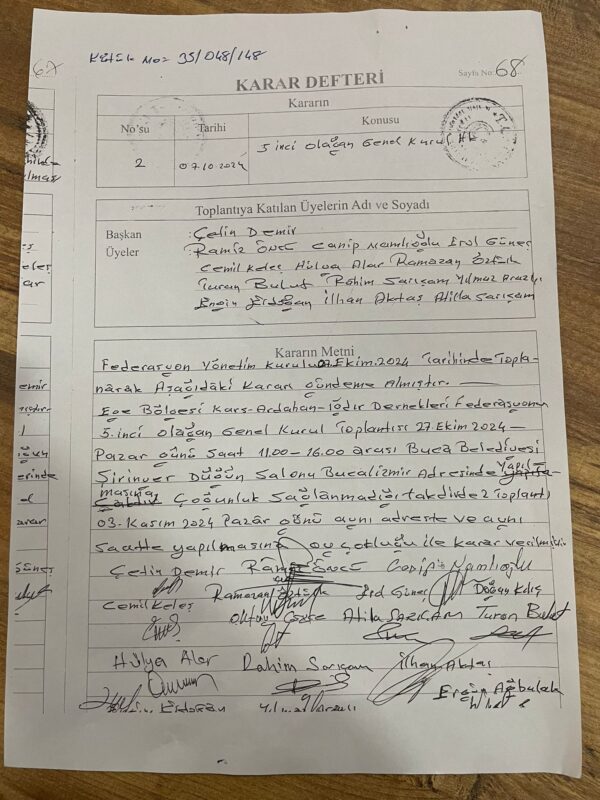 Kütük No= 35/048/148
67
Sayfa No: 68
KARAR DEFTERİ
Kararın
No'su
Tarihi
Konusu
2
07.10.2024
5 inci Olağan Genel Kurul
Toplantıya Katılan Üyelerin Adı ve Soyadı
Başkan : Çetin Demir
Üyeler : Ramiz Öncü Canip Namlıoğlu Erol Güneş
Cemil Keleş Hülya Alar Ramazan Öztürk
Turan Bulut Rahim Sarıçam Yılmaz
Engin Erdoğan İlhan Aktaş Atilla Sarıçam
Kararın Metni
Federasyon Yönetim Kurulu 07.Ekim.2024 Tarihinde Topla-
narak Aşağıdaki Kararı Gündeme Almıştır.
Ege Bölgesi Kars-Ardahan-Iğdır Dernekleri Federasyonu
5.inci Olağan Genel Kurul Toplantısı 27.Ekim 2024-
Pazar günü Saat 11.00-16.00 arası Buca Belediyesi
Şirinyer Düğün Salonu Buca/izmir Adresinde Yapıl-
masına Çoğunluk Sağlanmadığı takdirde 2 Toplantı
03-Kasım 2024 Pazar günü aynı adreste ve aynı
Saatte yapılmasına oy çokluğu ile karar verilmiştir.
Çetin Demir Ramiz Öncü Canip Namlıoğlu
Cemil Keleş Ramazan Öztürk Erol Güneş Doğan Kılıç
Oktay Atila SARIÇAM Turan Bulut
Hülya Alar Rahim Sarıçam İlhan Aktaş
Engin Erdoğan Yılmaz Ergün Ağbulak